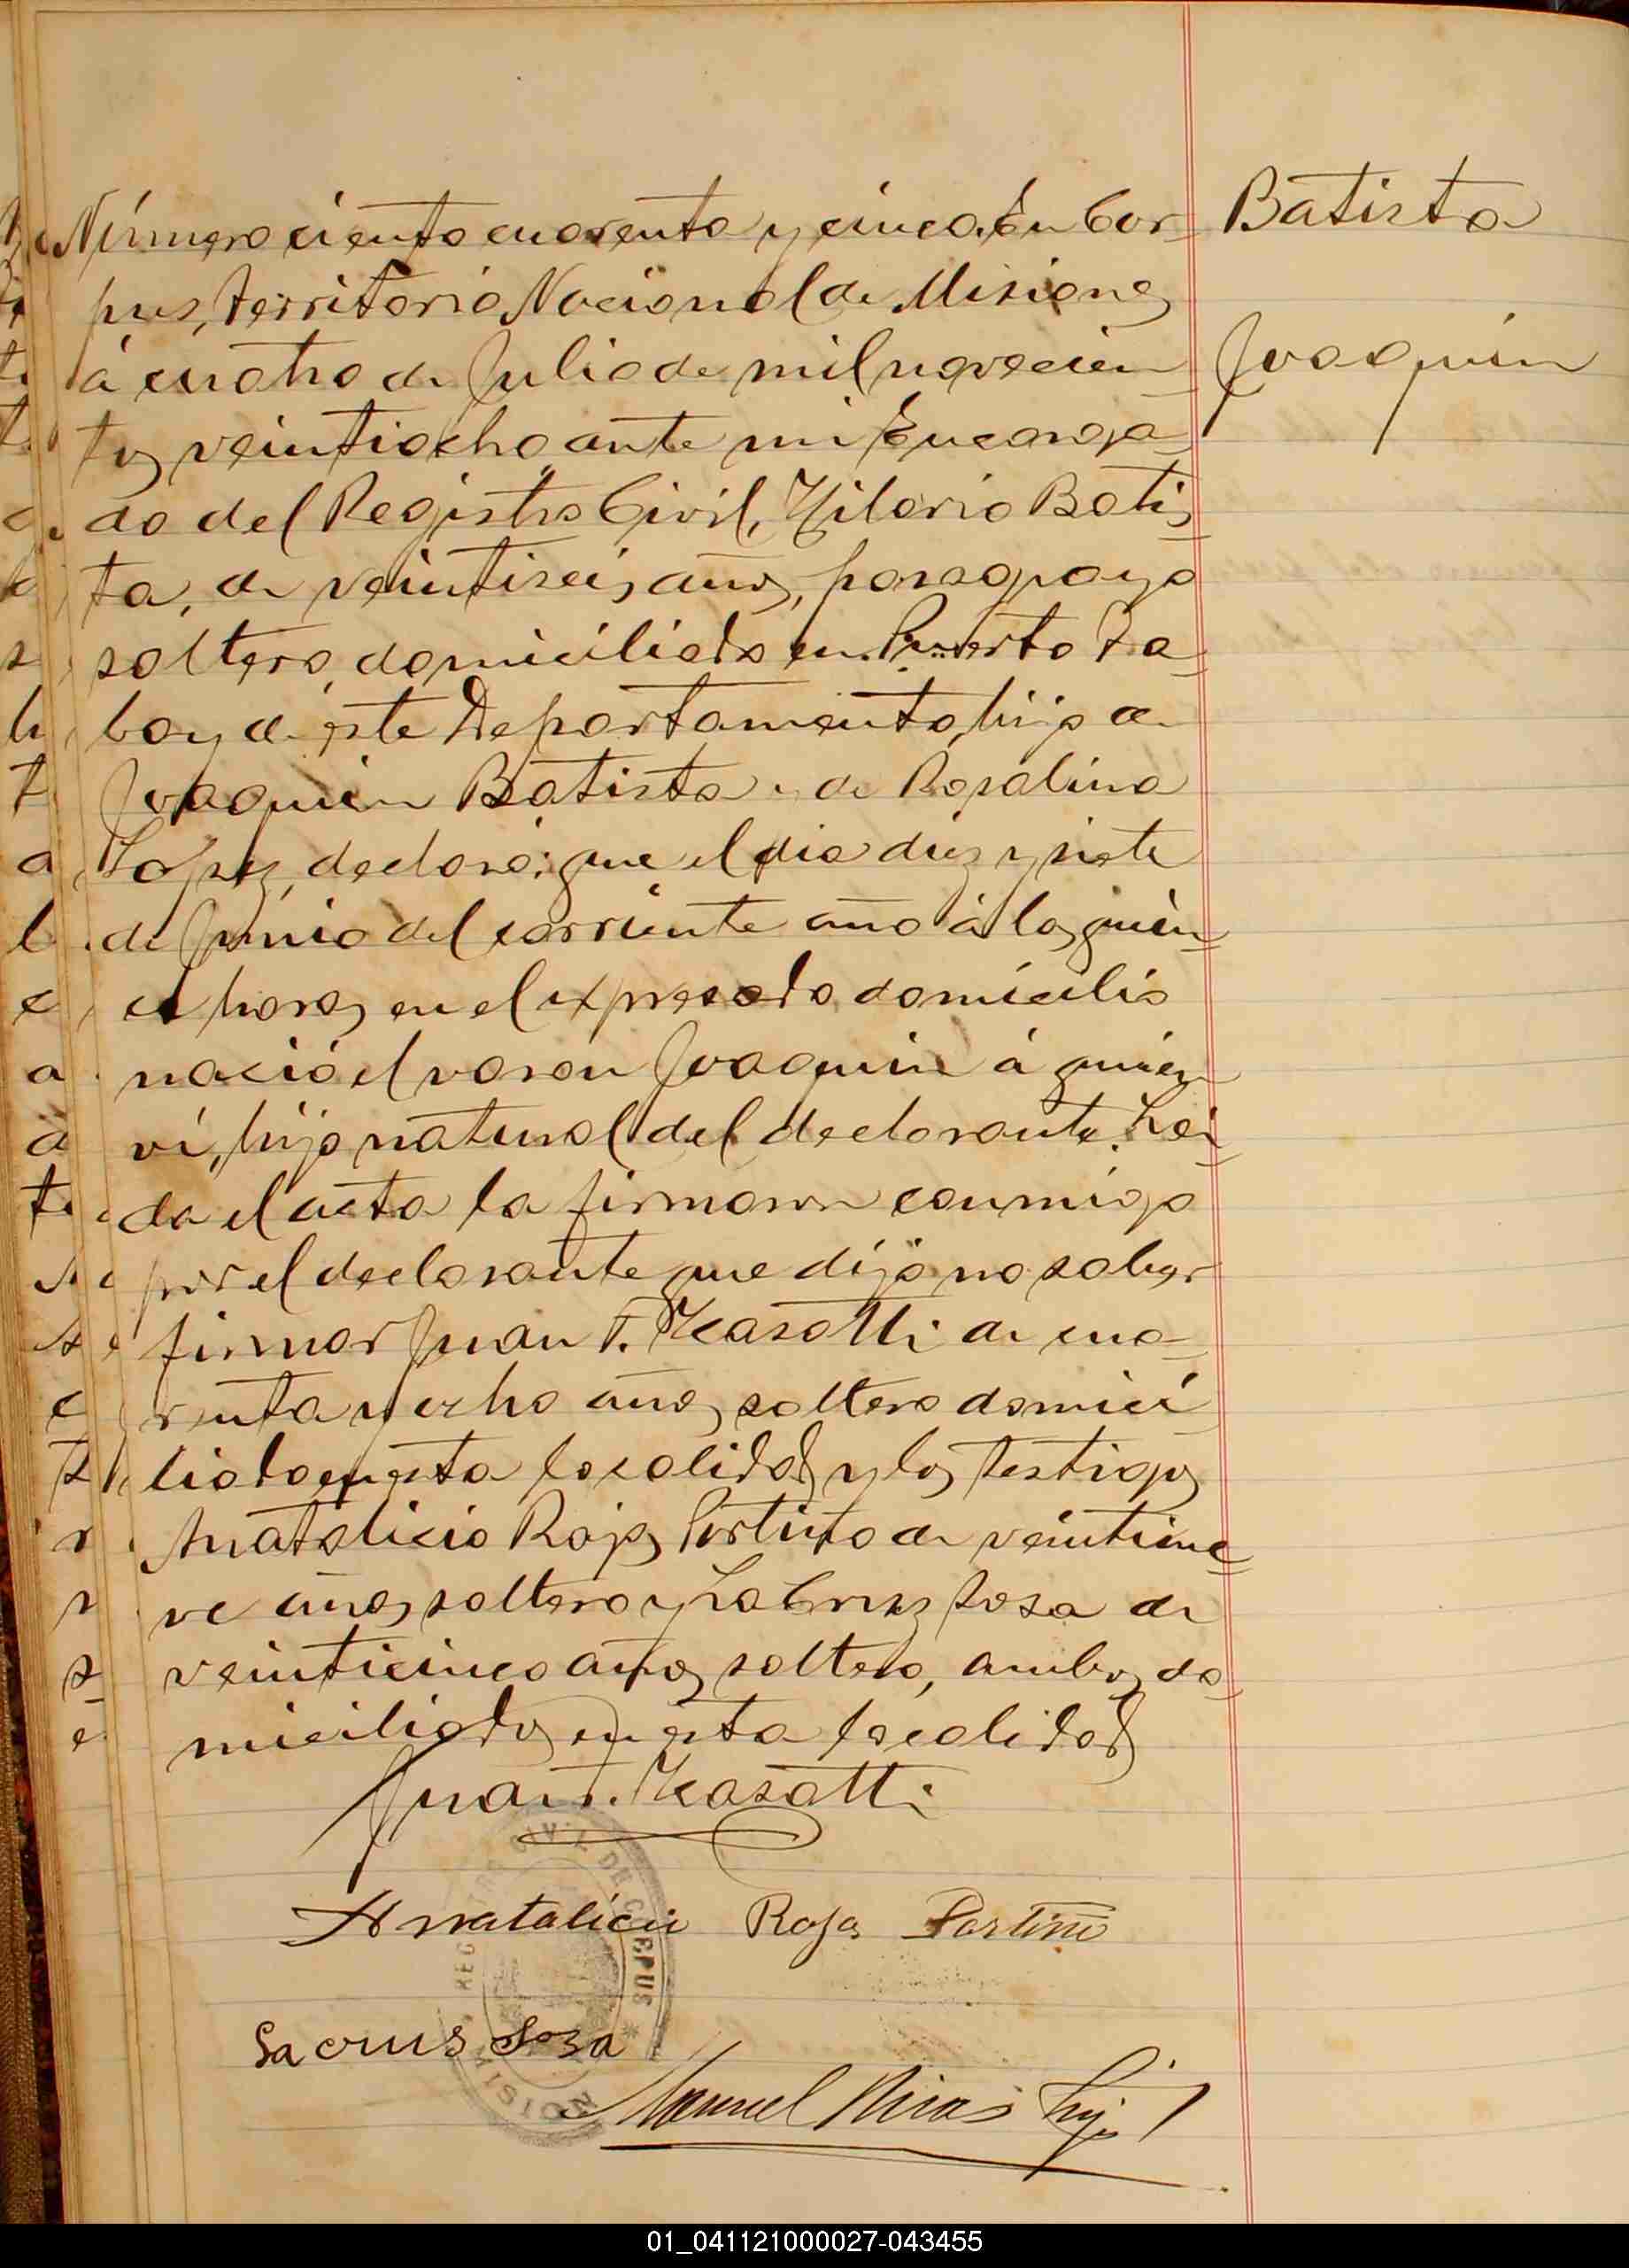 Batista
Joaquin
Número ciento cuarenta y cinco. En Cor
pus, Territorio Nacional de Misiones
á cuatro de Julio de mil novecien
tos veintiocho ante mi Encarga
do del Registro Civil, Hilario Batis
ta, de veintiseis años, paraguayo
soltero, domiciliado en Puerto Ta
bay de este Departamento, hijo de
Joaquin Batista y de Rosalina
Lopez, declaró: que el dia diez y siete
de Junio del corriente año á las quin
ce horas en el expresado domicilio
nació el varon Joaquin á quien
ví, hijo natural del declarante. Lei
da el acta la firmaron conmigo
por el declarante que dijo no saber
firmar Juan T. Kasatti de cua
renta y ocho años soltero domici
liado en esta localidad y los testigos
Anatalicio Rojas Portiño de veintinue
ve años soltero y La Cruz Sosa de
veinticinco años soltero, ambos do
miciliados en esta localidad
Juan T. Kasatti
Anatalicio Rojas Portiño
La crus Sosa
Manuel hijo
REGISTRO CIVIL DE CORPUS * MISIONES
01_041121000027-043455